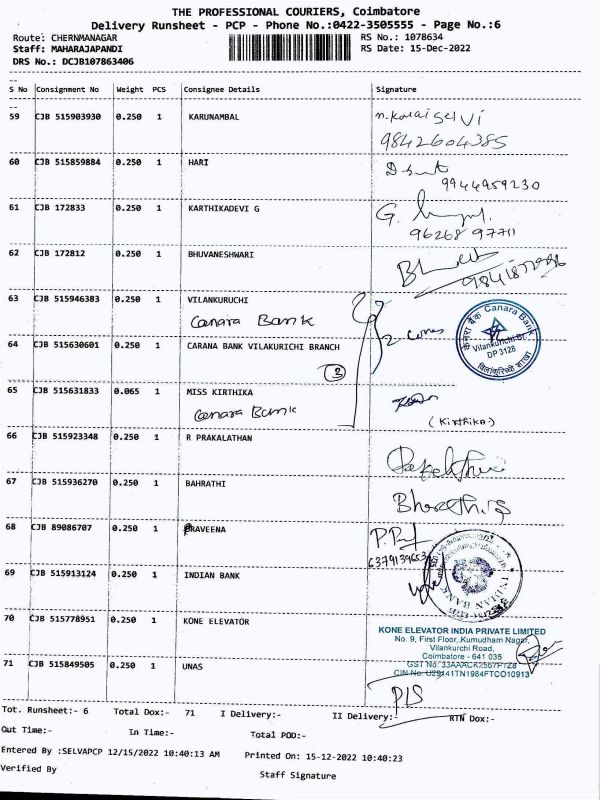 THE PROFESSIONAL COURIERS, Coimbatore
Delivery Runsheet - PCP - Phone No.:0422-3505555 - Page No.:6
Route: CHERNMANAGAR RS No.: 1078634
Staff: MAHARAJAPANDI RS Date: 15-Dec-2022
DRS No.: DCJB107863406
S No Consignment No Weight PCS Consignee Details Signature
59 CJB 515903930 0.250 1 KARUNAMBAL
9842604385
60 CJB 515859884 0.250 1 HARI
9944959230
61 CJB 172833 0.250 1 KARTHIKADEVI G G.
96268 97711
62 CJB 172812 0.250 1 BHUVANESHWARI
63 CJB 515946383 0.250 1 VILANKURUCHI
Canara Bank
2 Cones
Canara Bank
केनरा बैंक
Vilankurichi Br.
DP 3128
64 CJB 515630601 0.250 1 CARANA BANK VILAKURICHI BRANCH
3
65 CJB 515631833 0.065 1 MISS KIRTHIKA
Canara Bank
(Kirthika)
66 CJB 515923348 0.250 1 R PRAKALATHAN
67 CJB 515936270 0.250 1 BAHRATHI
68 CJB 89086707 0.250 1 PRAVEENA
6379139653
69 CJB 515913124 0.250 1 INDIAN BANK
INDIAN BANK
70 CJB 515778951 0.250 1 KONE ELEVATOR
KONE ELEVATOR INDIA PRIVATE LIMITED
No. 9, First Floor, Kumudham Nagar,
Vilankurichi Road,
Coimbatore - 641 035
GST No. 33AAACK2567P1Z8
CIN No. U29141TN1984FTCO10913
71 CJB 515849505 0.250 1 UNAS
Tot. Runsheet:- 6 Total Dox:- 71 I Delivery:- II Delivery:- RTN Dox:-
Out Time:- In Time:- Total POD:-
Entered By :SELVAPCP 12/15/2022 10:40:13 AM Printed On: 15-12-2022 10:40:23
Verified By Staff Signature